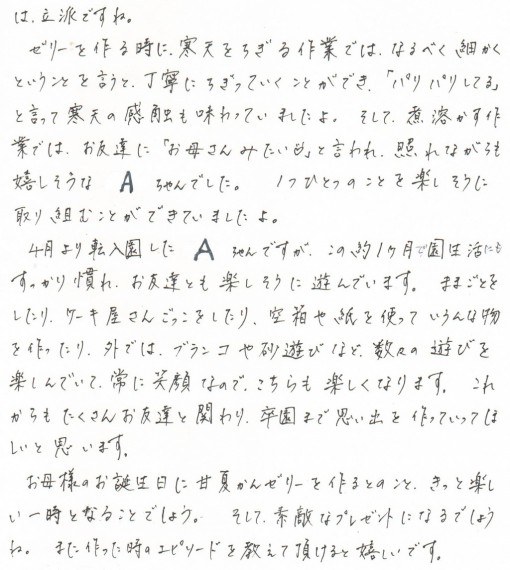 は、立派ですね。
ゼリーを作る時に、寒天をちぎる作業では、なるべく細かく
ということを言うと、丁寧にちぎっていくことができ、「パリパリしてる」
と言って寒天の感触も味わっていましたよ。そして、煮溶かす作
業では、お友達に「お母さんみたいね」と言われ、照れながらも
嬉しそうな A ちゃんでした。 1つひとつのことを楽しそうに
取り組むことができていましたよ。
4月より転入園した A ちゃんですが、この約1ヶ月で園生活にも
すっかり慣れ、お友達とも楽しそうに遊んでいます。ままごとを
したり、ケーキ屋さんごっこをしたり、空箱や紙を使っていろんな物
を作ったり、外では、ブランコや砂遊びなど、数々の遊びを
楽しんでいて、常に笑顔なので、こちらも楽しくなります。これ
からもたくさんお友達と関わり、卒園まで思い出を作っていってほ
しいと思います。
お母様のお誕生日に甘夏かんゼリーを作るとのこと、きっと楽し
い一時となることでしょう。そして、素敵なプレゼントになるでしょう
ね。また作った時のエピソードを教えて頂けると嬉しいです。